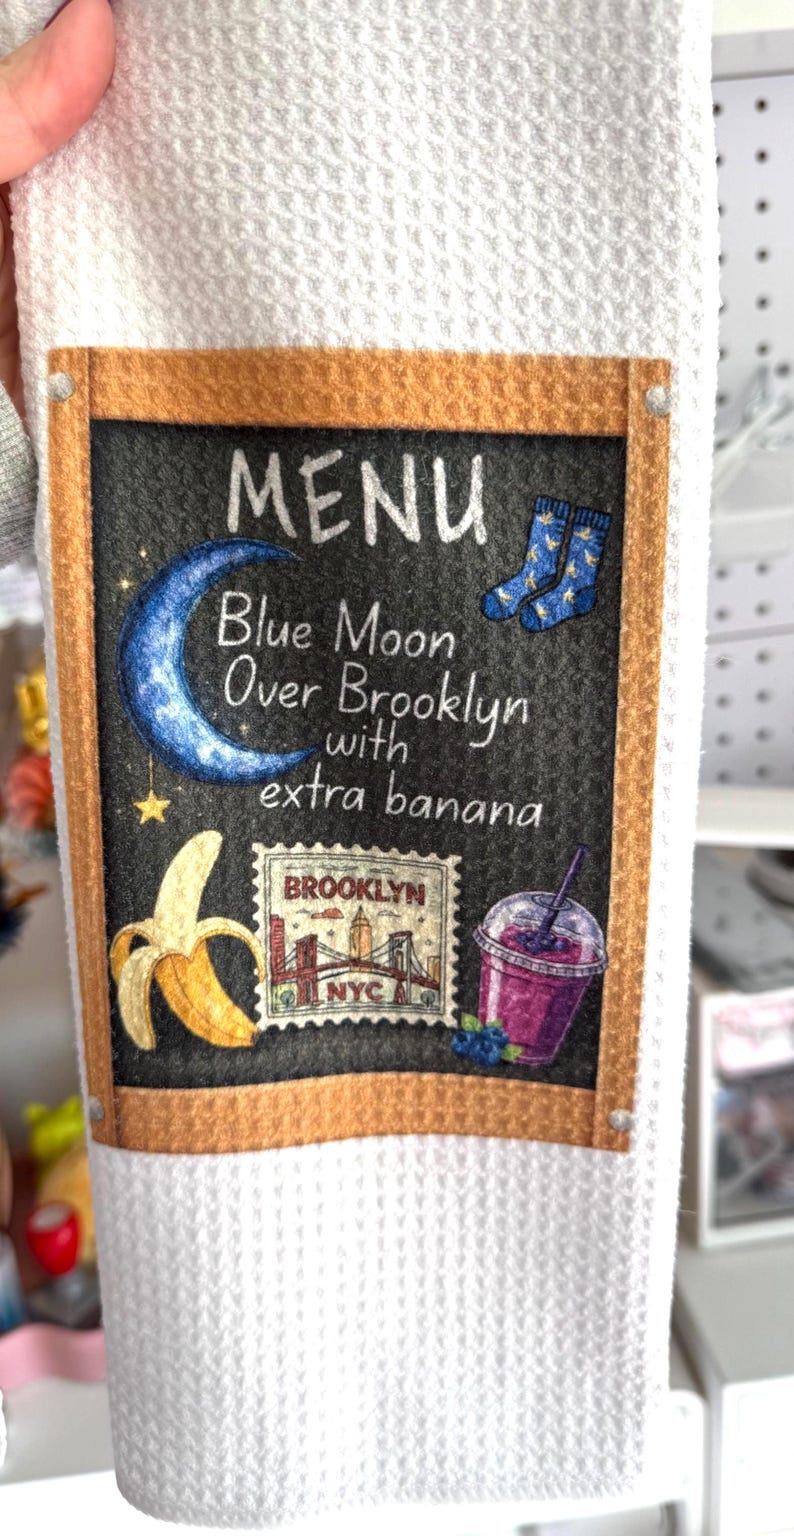 MENU
Blue Moon
Over Brooklyn
with
extra banana
BROOKLYN
NYC